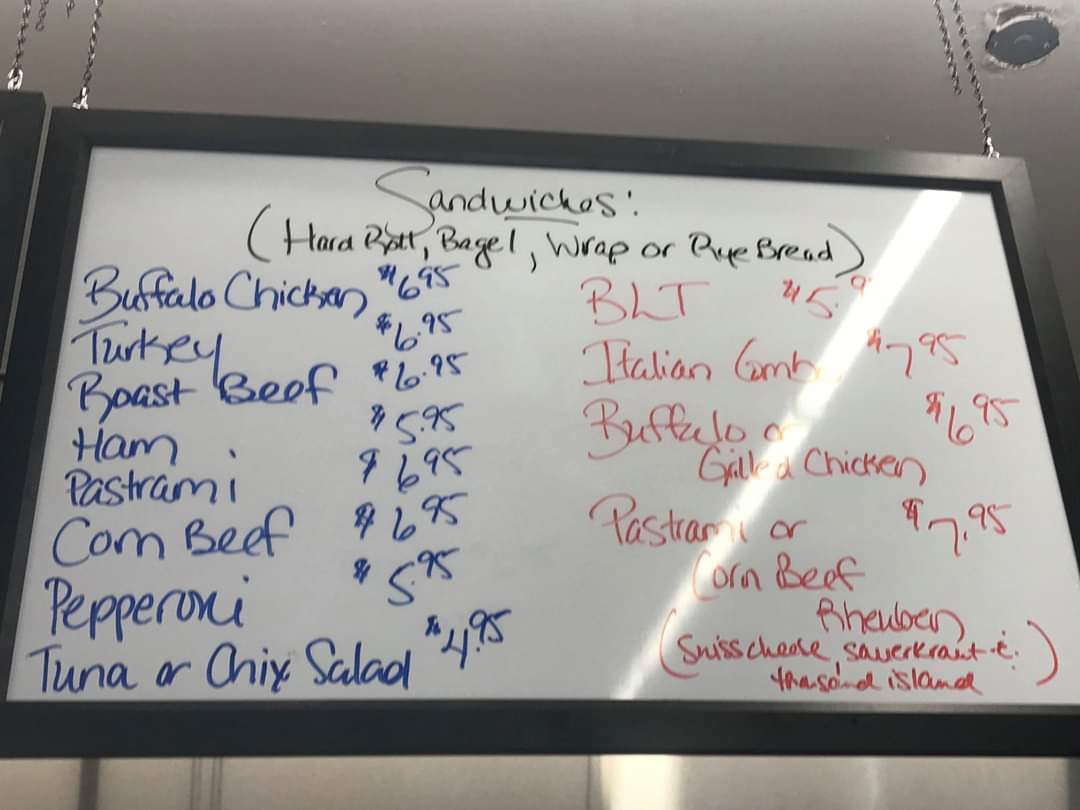 Sandwiches:
(Hard Roll, Bagel, Wrap or Rye Bread)
Buffalo Chicken $6.95
Turkey $6.95
Roast Beef $6.95
Ham $5.95
Pastrami $6.95
Corn Beef $6.95
Pepperoni $5.95
Tuna or Chix Salad $4.95
BLT $5.9
Italian Comb $7.95
Buffalo or $6.95
Grilled Chicken
Pastrami or $7.95
Corn Beef
Rheuben
(Swiss cheese, sauerkraut &
thousand island)